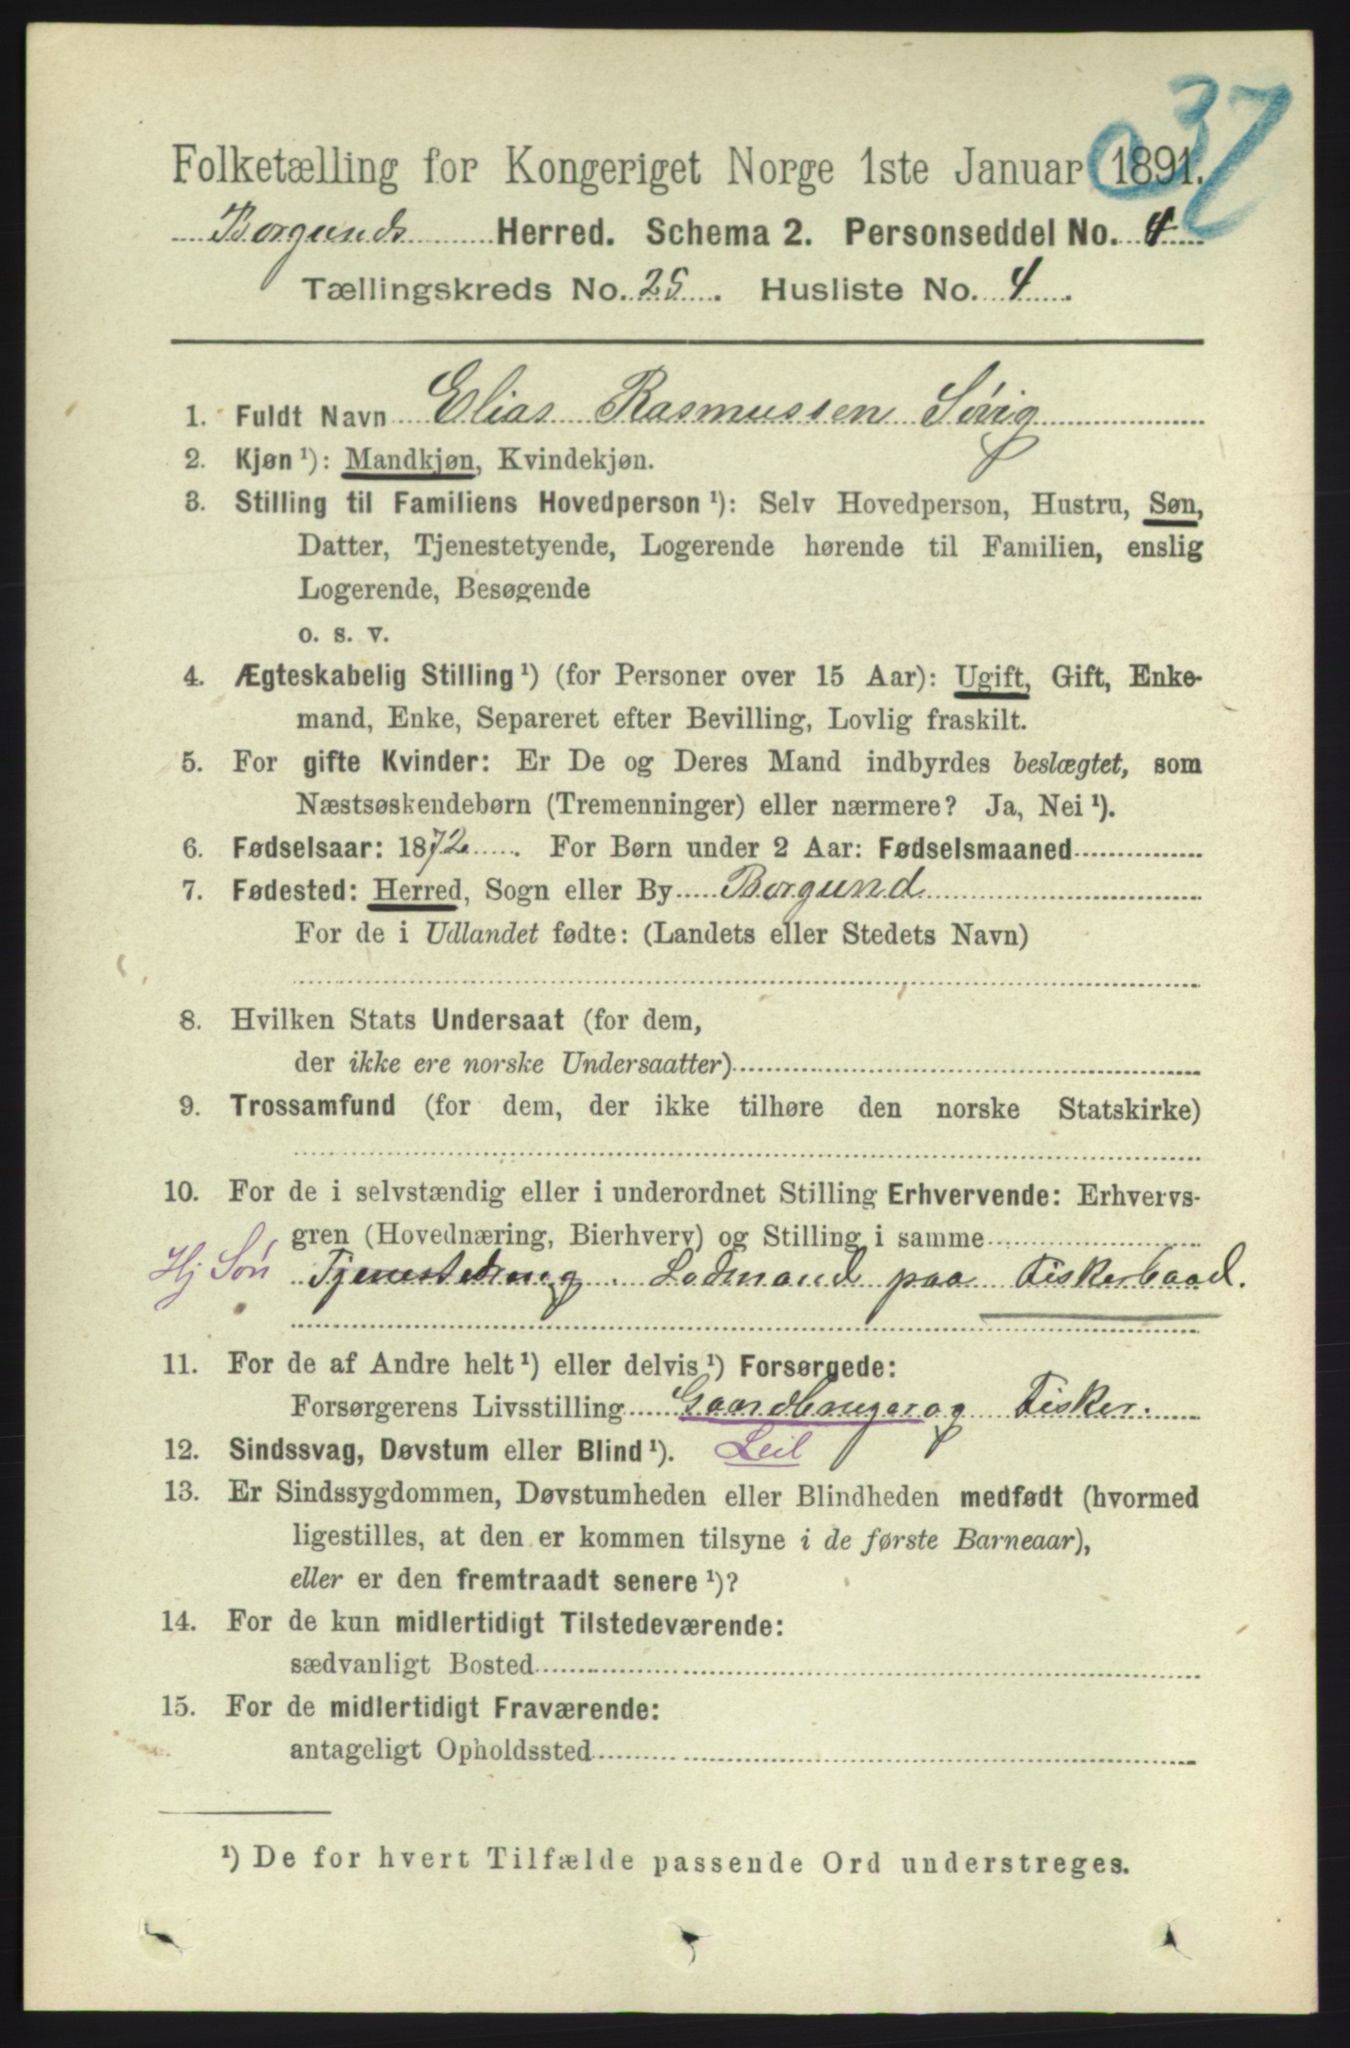 037
Folketælling for Kongeriget Norge 1ste Januar 1891.
Borgunds Herred. Schema 2. Personseddel No. 4
Tællingskreds No. 25. Husliste No. 4.
1. Fuldt Navn Elias Rasmussen Sørig
2. Kjøn ¹): Mandkjøn, Kvindekjøn.
3. Stilling til Familiens Hovedperson ¹): Selv Hovedperson, Hustru, Søn,
Datter, Tjenestetyende, Logerende hørende til Familien, enslig
Logerende, Besøgende
o. s. v.
4. Ægteskabelig Stilling ¹) (for Personer over 15 Aar): Ugift, Gift, Enke-
mand, Enke, Separeret efter Bevilling, Lovlig fraskilt.
5. For gifte Kvinder: Er De og Deres Mand indbyrdes beslægtet, som
Næstsøskendebørn (Tremenninger) eller nærmere? Ja, Nei ¹).
6. Fødselsaar: 1872. For Børn under 2 Aar: Fødselsmaaned
7. Fødested: Herred, Sogn eller By Borgund
For de i Udlandet fødte: (Landets eller Stedets Navn)
8. Hvilken Stats Undersaat (for dem,
der ikke ere norske Undersaatter)
9. Trossamfund (for dem, der ikke tilhøre den norske Statskirke)
10. For de i selvstændig eller i underordnet Stilling Erhvervende: Erhvervs-
gren (Hovednæring, Bierhverv) og Stilling i samme
Hj Søn Tjenestedreng. Lodmand paa Fiskerbaad.
11. For de af Andre helt ¹) eller delvis ¹) Forsørgede:
Forsørgerens Livsstilling Gaardbruger og Fisker.
12. Sindssvag, Døvstum eller Blind ¹). Leil
13. Er Sindssygdommen, Døvstumheden eller Blindheden medfødt (hvormed
ligestilles, at den er kommen tilsyne i de første Barneaar),
eller er den fremtraadt senere ¹)?
14. For de kun midlertidigt Tilstedeværende:
sædvanligt Bosted
15. For de midlertidigt Fraværende:
antageligt Opholdssted
¹) De for hvert Tilfælde passende Ord understreges.